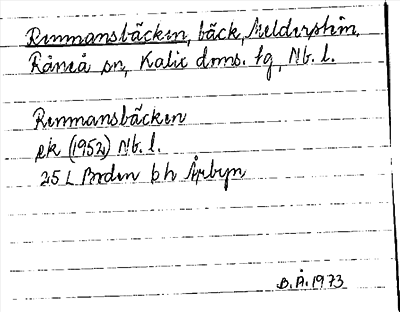 Renmansbäcken, bäck, Melderstein,
Råneå sn, Kalix doms. tg, Nb. l.
Renmansbäcken
ek (1952) Nb. l.
25 L Boden bh Årbyn
B. Å. 1973